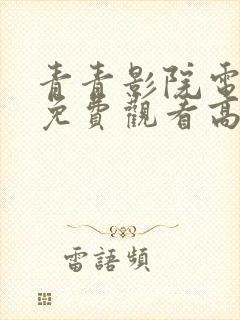 青青影院電
免費觀看高
雷語頻